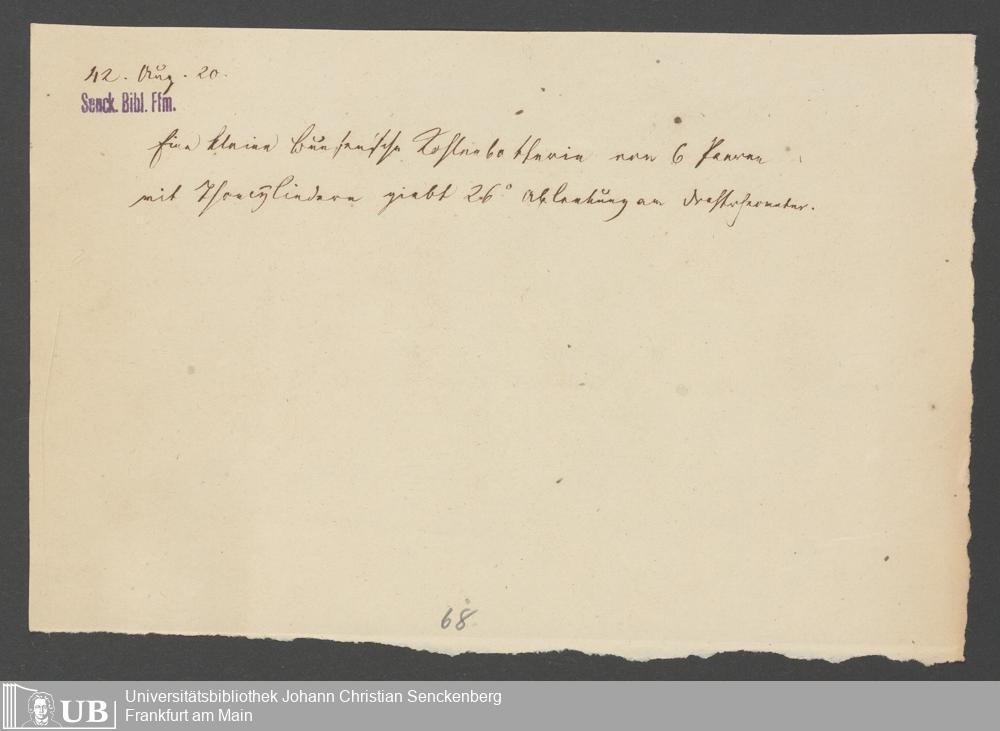 42. Aug. 20.
Senck. Bibl. Ffm.
Eine kleine Bunsen'sche Kohlenbatterie von 6 Paaren
mit Thoncylindern giebt 26° Ablenkung am
68
Universitätsbibliothek Johann Christian Senckenberg
Frankfurt am Main
UB